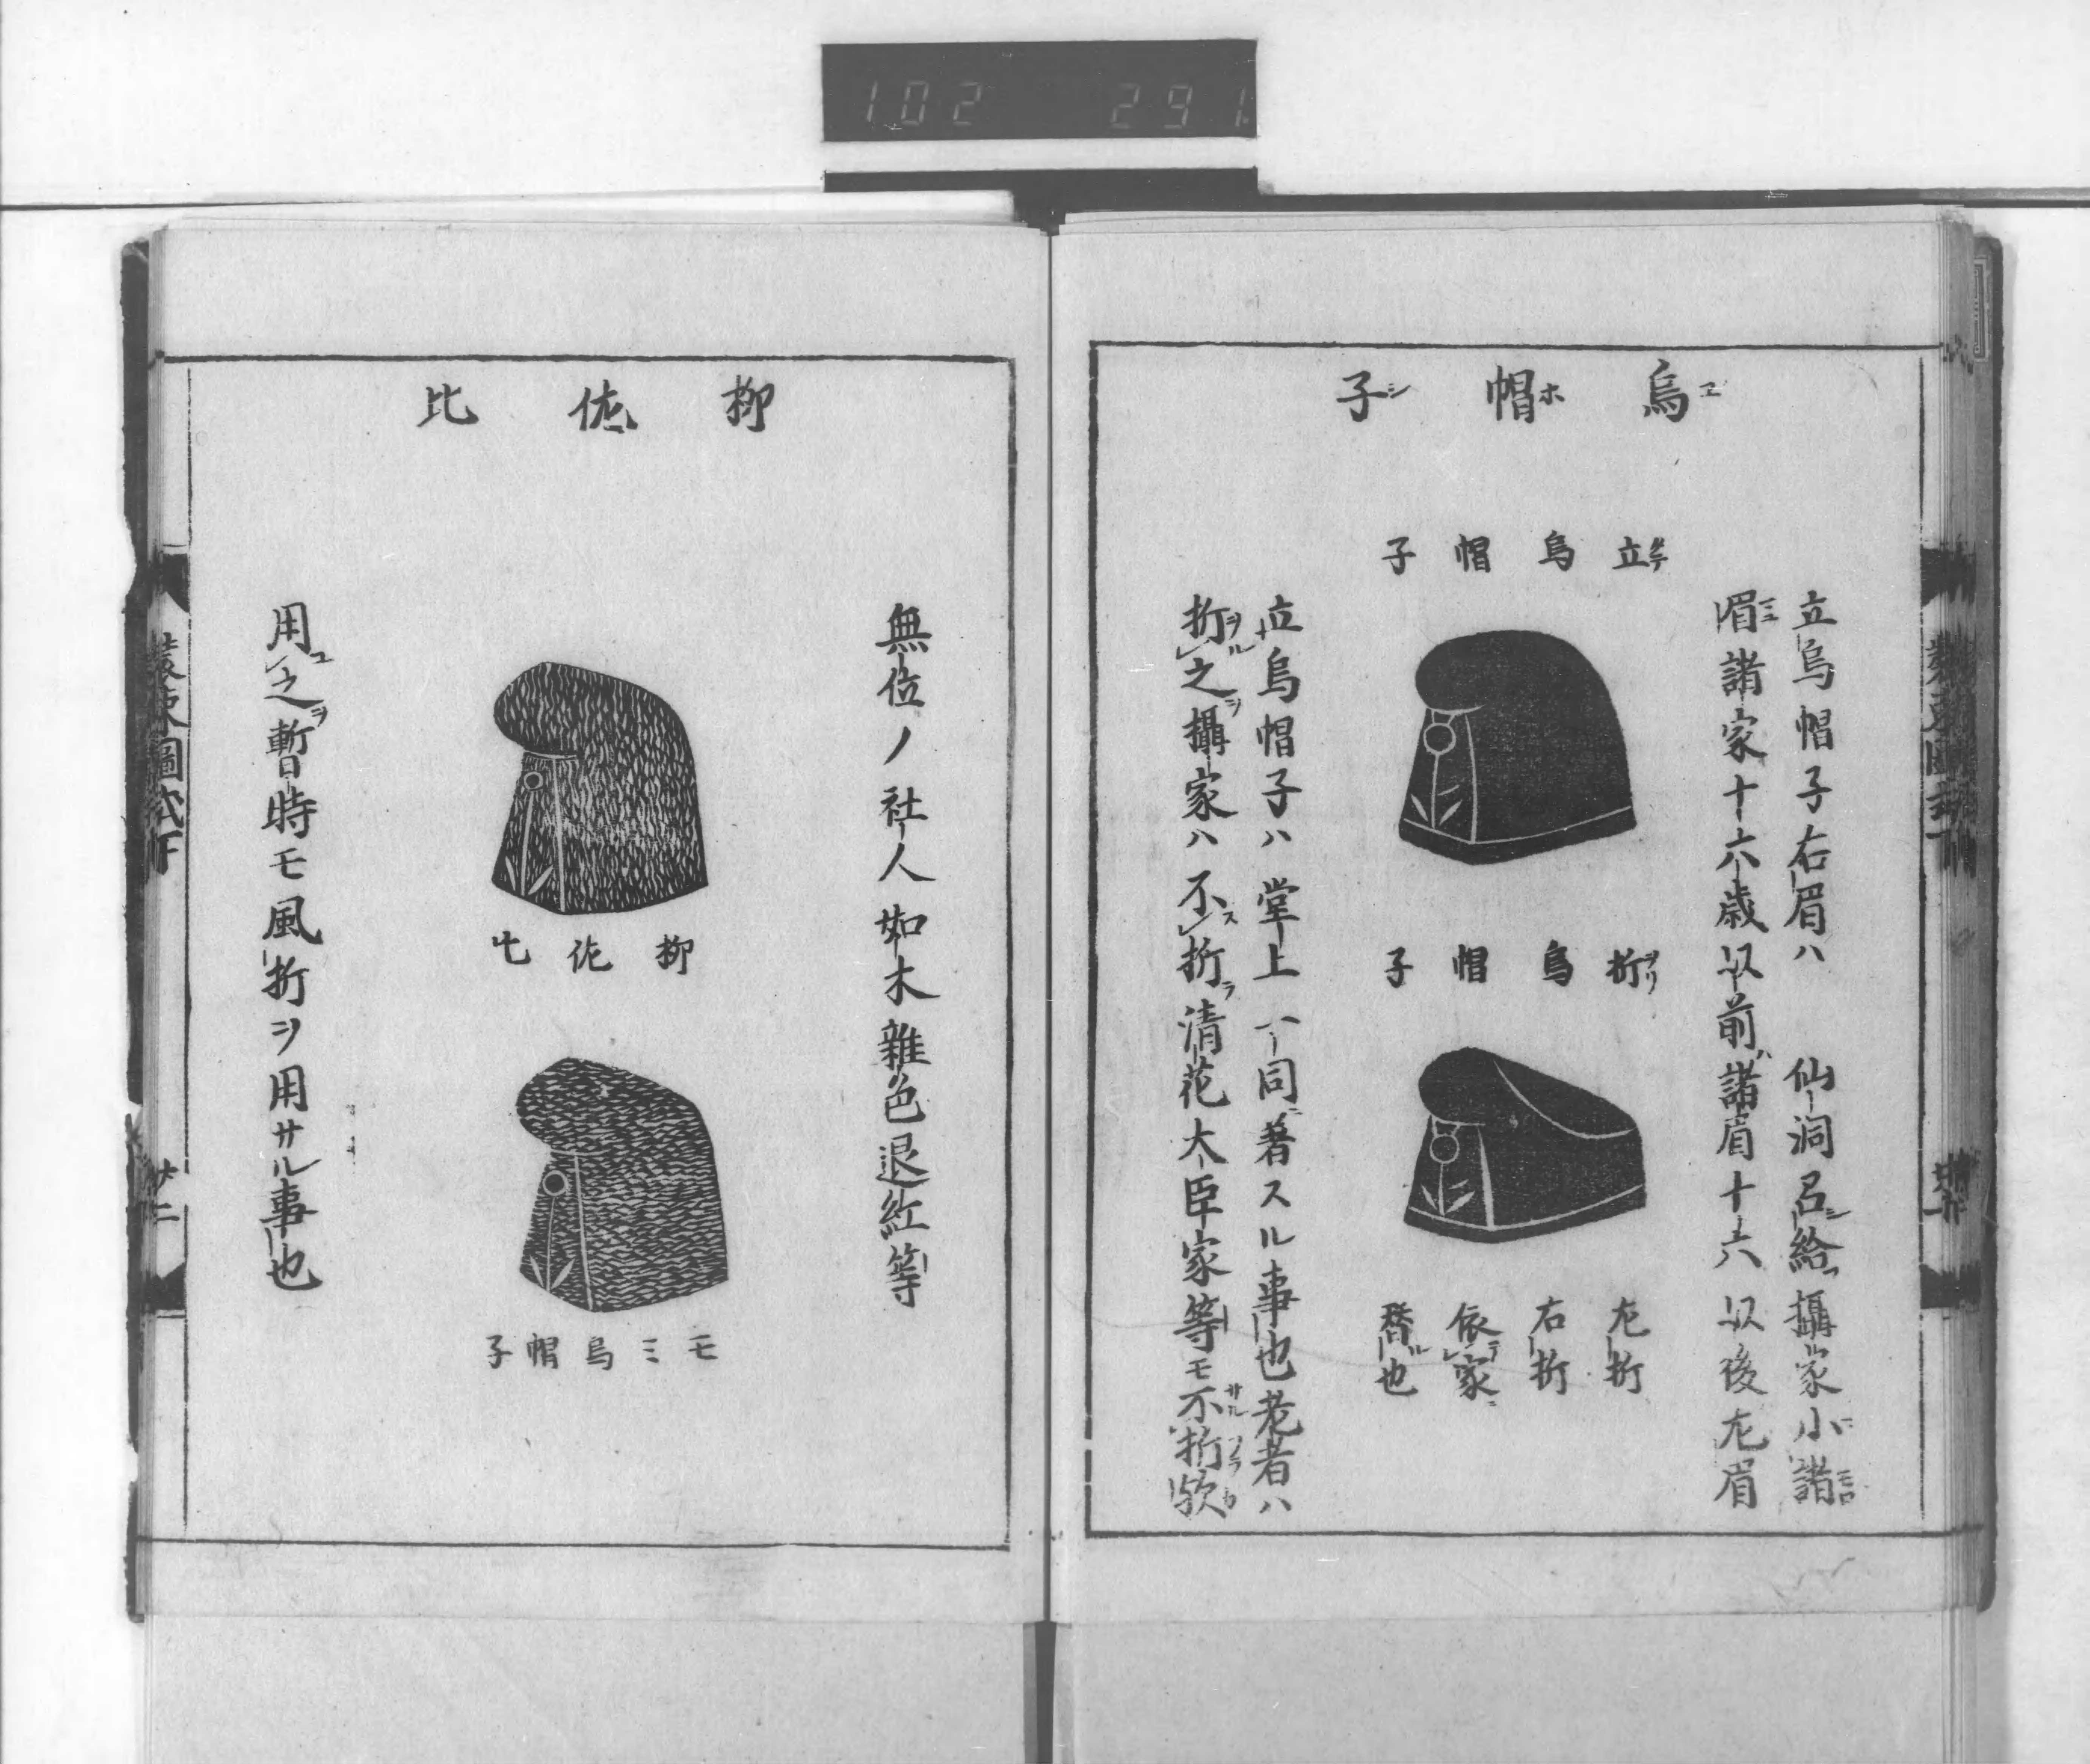 102 291
烏帽子
立烏帽子右眉ハ 仙洞召給攝家小諸
眉諸家十六歳以前ハ諸眉十六以後左眉
立烏帽子
折烏帽子
左折
右折
依家
替也
立烏帽子ハ堂上一同著スル事也老者ハ
折之攝家ハ不折清花大臣家等モ不折歟
柳佐比
無位ノ社人如木雜色退紅等
柳佐比
モミ烏帽子
用之暫時モ風折ヲ用サル事也
裝束圖式下
廿二